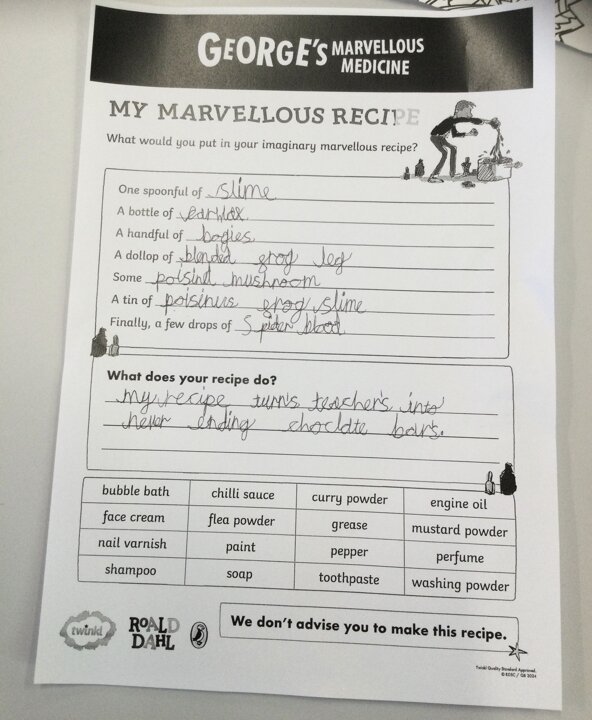 GEORGE'S MARVELLOUS MEDICINE
MY MARVELLOUS RECIPE
What would you put in your imaginary marvellous recipe?
One spoonful of slime
A bottle of earwax
A handful of bogies
A dollop of blended frog leg
Some poisind mushroom
A tin of poisinus frog slime
Finally, a few drops of Spider blood
What does your recipe do?
my recipe turns teacher's into
never ending choclate bars.
bubble bath chilli sauce curry powder engine oil
face cream flea powder grease mustard powder
nail varnish paint pepper perfume
shampoo soap toothpaste washing powder
twinkl
ROALD DAHL
We don't advise you to make this recipe.
Twinkl Quality Standard Approved.
© RDSC / QB 2024